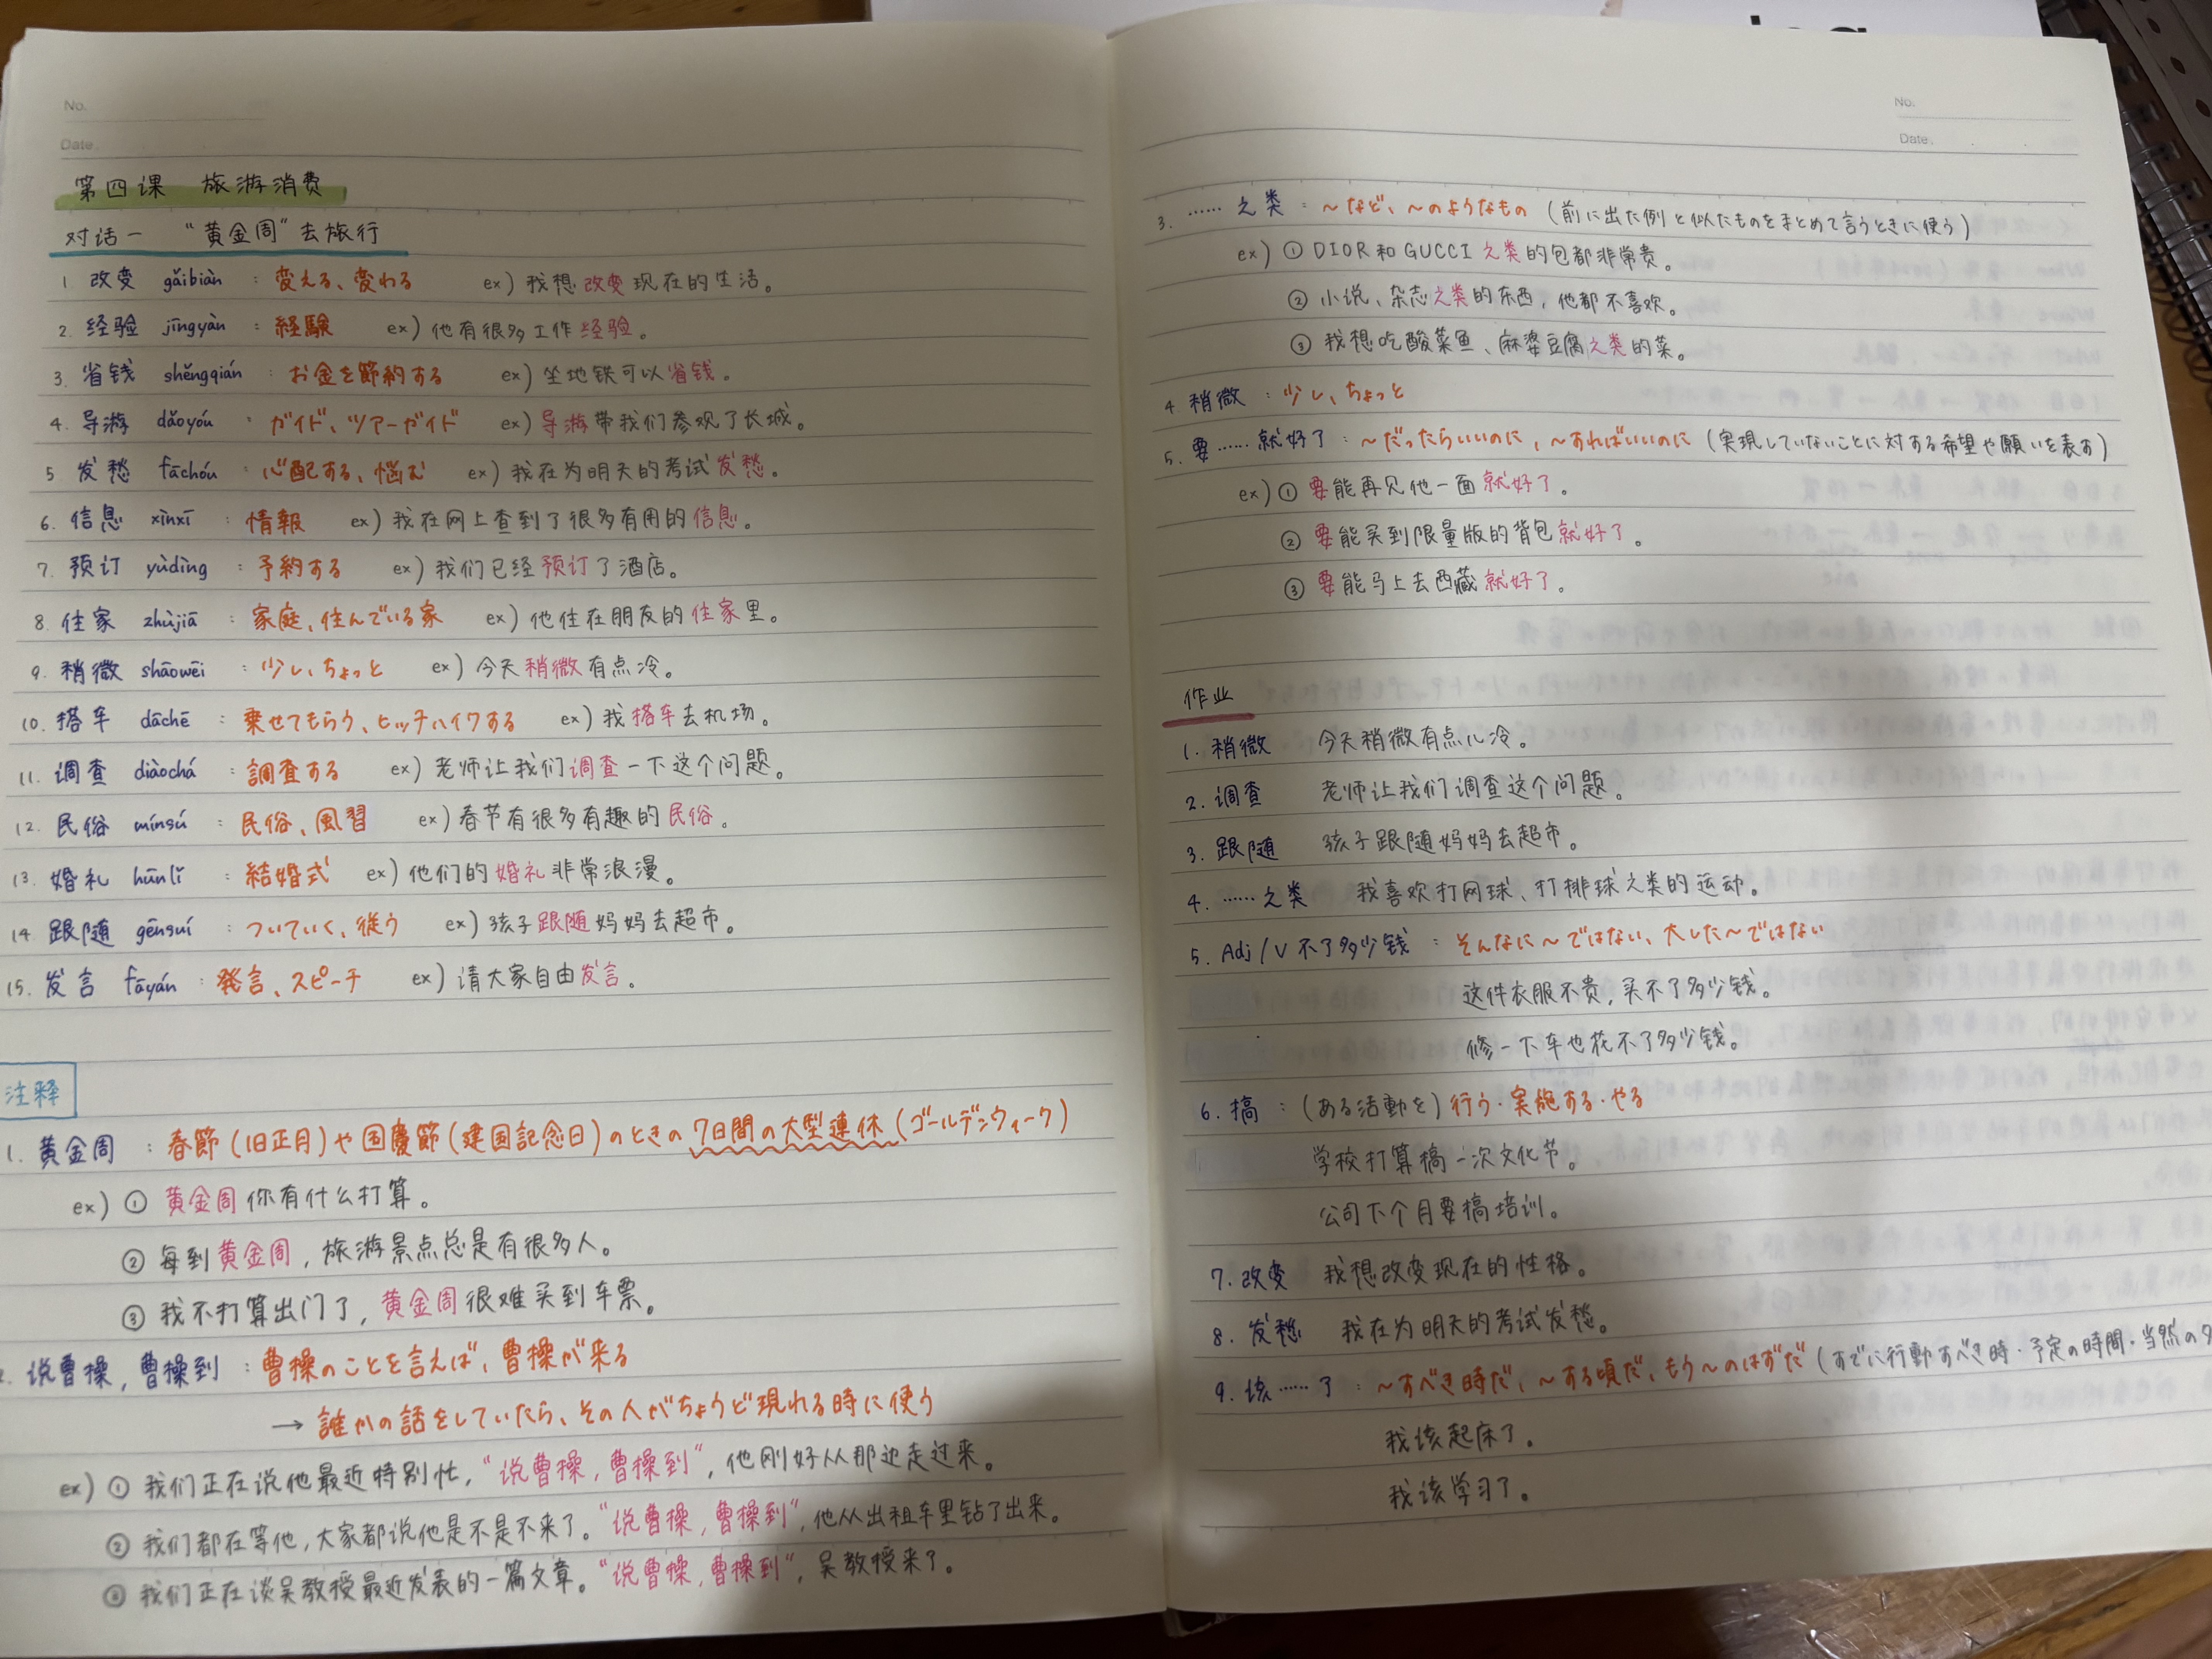 No.
Date
第四课 旅游消费
对话一 “黄金周”去旅行
1. 改变 gǎibiàn : 変える、変わる ex) 我想改变现在的生活。
2. 经验 jīngyàn : 経験 ex) 他有很多工作经验。
3. 省钱 shěngqián : お金を節約する ex) 坐地铁可以省钱。
4. 导游 dǎoyóu : ガイド、ツアーガイド ex) 导游带我们参观了长城。
5 发愁 fāchóu : 心配する、悩む ex) 我在为明天的考试发愁。
6. 信息 xìnxī : 情報 ex) 我在网上查到了很多有用的信息。
7. 预订 yùdìng : 予約する ex) 我们已经预订了酒店。
8. 住家 zhùjiā : 家庭、住んでいる家 ex) 他住在朋友的住家里。
9. 稍微 shāowēi : 少し、ちょっと ex) 今天稍微有点冷。
10. 搭车 dāchē : 乗せてもらう、ヒッチハイクする ex) 我搭车去机场。
11. 调查 diàochá : 調査する ex) 老师让我们调查一下这个问题。
12. 民俗 mínsú : 民俗、風習 ex) 春节有很多有趣的民俗。
13. 婚礼 hūnlǐ : 結婚式 ex) 他们的婚礼非常浪漫。
14 跟随 gēnsuí : ついていく、従う ex) 孩子跟随妈妈去超市。
15. 发言 fāyán : 発言、スピーチ ex) 请大家自由发言。
注释
1. 黄金周 : 春節(旧正月)や国慶節(建国記念日)のときの7日間の大型連休(ゴールデンウィーク)
ex) ① 黄金周你有什么打算。
② 每到黄金周，旅游景点总是有很多人。
③ 我不打算出门了，黄金周很难买到车票。
说曹操，曹操到 : 曹操のことを言えば、曹操が来る
→ 誰かの話をしていたら、その人がちょうど現れる時に使う
ex) ① 我们正在说他最近特别忙，“说曹操，曹操到”，他刚好从那边走过来。
② 我们都在等他，大家都说他是不是不来了。“说曹操，曹操到”，他从出租车里钻了出来。
③ 我们正在谈吴教授最近发表的一篇文章。“说曹操，曹操到”，吴教授来了。
No.
Date
3. …… 之类 : ～など、～のようなもの (前に出た例と似たものをまとめて言うときに使う)
ex) ① DIOR和GUCCI之类的包都非常贵。
② 小说、杂志之类的东西，他都不喜欢。
③ 我想吃酸菜鱼、麻婆豆腐之类的菜。
4. 稍微 : 少し、ちょっと
5. 要……就好了 : ～だったらいいのに，～すればいいのに (実現していないことに対する希望や願いを表す)
ex) ① 要能再见他一面就好了。
② 要能买到限量版的背包就好了。
③ 要能马上去西藏就好了。
作业
1. 稍微 今天稍微有点儿冷。
2. 调查 老师让我们调查这个问题。
3. 跟随 孩子跟随妈妈去超市。
4. ……之类 我喜欢打网球、打排球之类的运动。
5. Adj/V不了多少钱 : そんなに～ではない、大した～ではない
这件衣服不贵，买不了多少钱。
修一下车也花不了多少钱。
6. 搞 : (ある活動を)行う・実施する・やる
学校打算搞一次文化节。
公司下个月要搞培训。
7. 改变 我想改变现在的性格。
8. 发愁 我在为明天的考试发愁。
9. 该……了 : ～すべき時だ、～する頃だ、もう～のはずだ (すでに行動すべき時・予定の時間・当然の
我该起床了。
我该学习了。